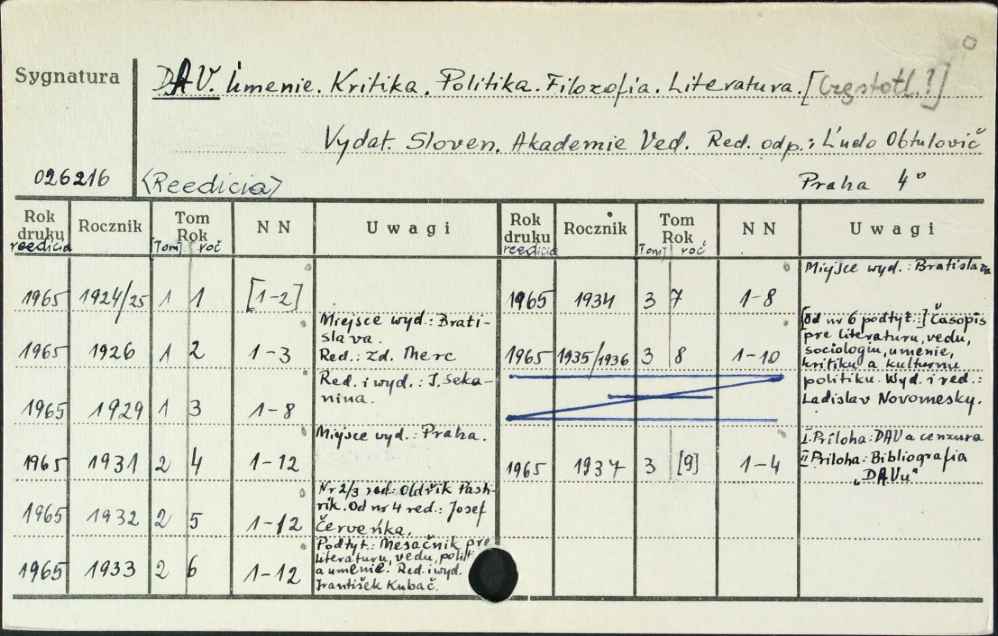 Sygnatura
DAV. Umenie. Kritika. Politika. Filozofia. Literatura. [Częstotl.?]
Vydat. Sloven. Akademie Ved. Red. odp.: Ľudo Obtulovič
026216 <Reedicia> Praha 4°
Rok druku reedicia Rocznik Tom Rok [Tom] roč NN Uwagi Rok druku reedicia Rocznik Tom Rok [Tom] roč NN Uwagi
1965 1924/25 1 1 [1-2]
1965 1926 1 2 1-3 Miejsce wyd.: Brati-
slava.
Red.: Zd. Merc
1965 1929 1 3 1-8 Red. i wyd.: J. Seka-
nina.
1965 1931 2 4 1-12 Miejsce wyd.: Praha.
1965 1932 2 5 1-12 Nr 2/3 red: Oldřik
rik. Od nr 4 red.: Josef
Červeňka.
1965 1933 2 6 1-12 Podtyt.: Mesačnik pre
literaturu, vedu, polit
a umenie. Red. i wyd.
František Kubač.
1965 1934 3 7 1-8 Miejsce wyd.: Bratislava
1965 1935/1936 3 8 1-10 [Od nr 6 podtyt.:] Časopis
pre literaturu, vedu,
sociologiu, umenie,
kritiku a kulturnu
politiku. Wyd. i red.:
Ladislav Novomesky.
1965 1937 3 [9] 1-4 I. Priloha: DAV a cenzura
II Priloha: Bibliografia
"DAVu"